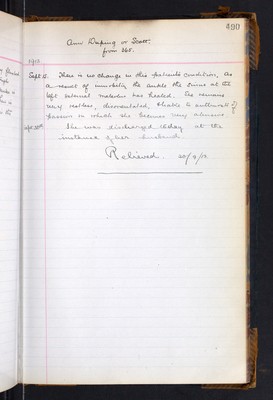 490
Ann Duping or Scott.
from 365.
1912
Sept. 15. There is no change in this patient's condition. As
a result of immobility the ankle the sinus at the
left external malleolus has healed. She remains
very restless, discontented, & liable to outbreaks of
passion in which she becomes very abusive.
Sept. 28th She was discharged today at the
instance of her husband
Relieved. 28/9/12